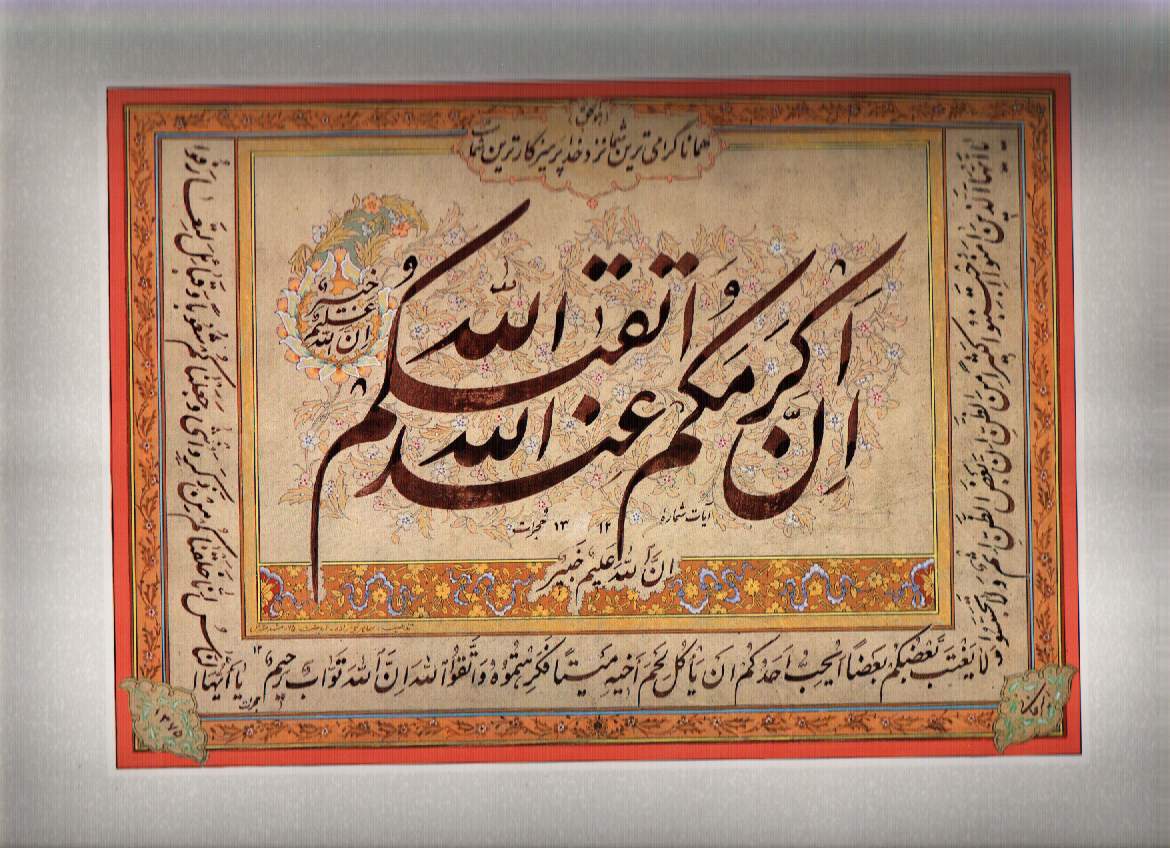 هو العلی
همانا گرامی ترین شما نزد خدا پرهیزکارترین شماست
ان اکرمکم عند الله اتقیکم
ان الله علیم خبیر
آیات شماره ۱۲ ۱۳ حجرات
ان الله علیم خبیر
یا ایها الذین آمنوا اجتنبوا کثیرا من الظن ان بعض الظن اثم ولا تجسسوا و
لا یغتب بعضکم بعضا ایحب احدکم ان یأکل لحم اخیه میتا فکرهتموه واتقوا الله ان الله تواب رحیم ۱۲ حجرات یا ایها ا
لناس انا خلقناکم من ذکر و انثی وجعلناکم شعوبا و قبائل لتعارفوا
۱۳۷۵